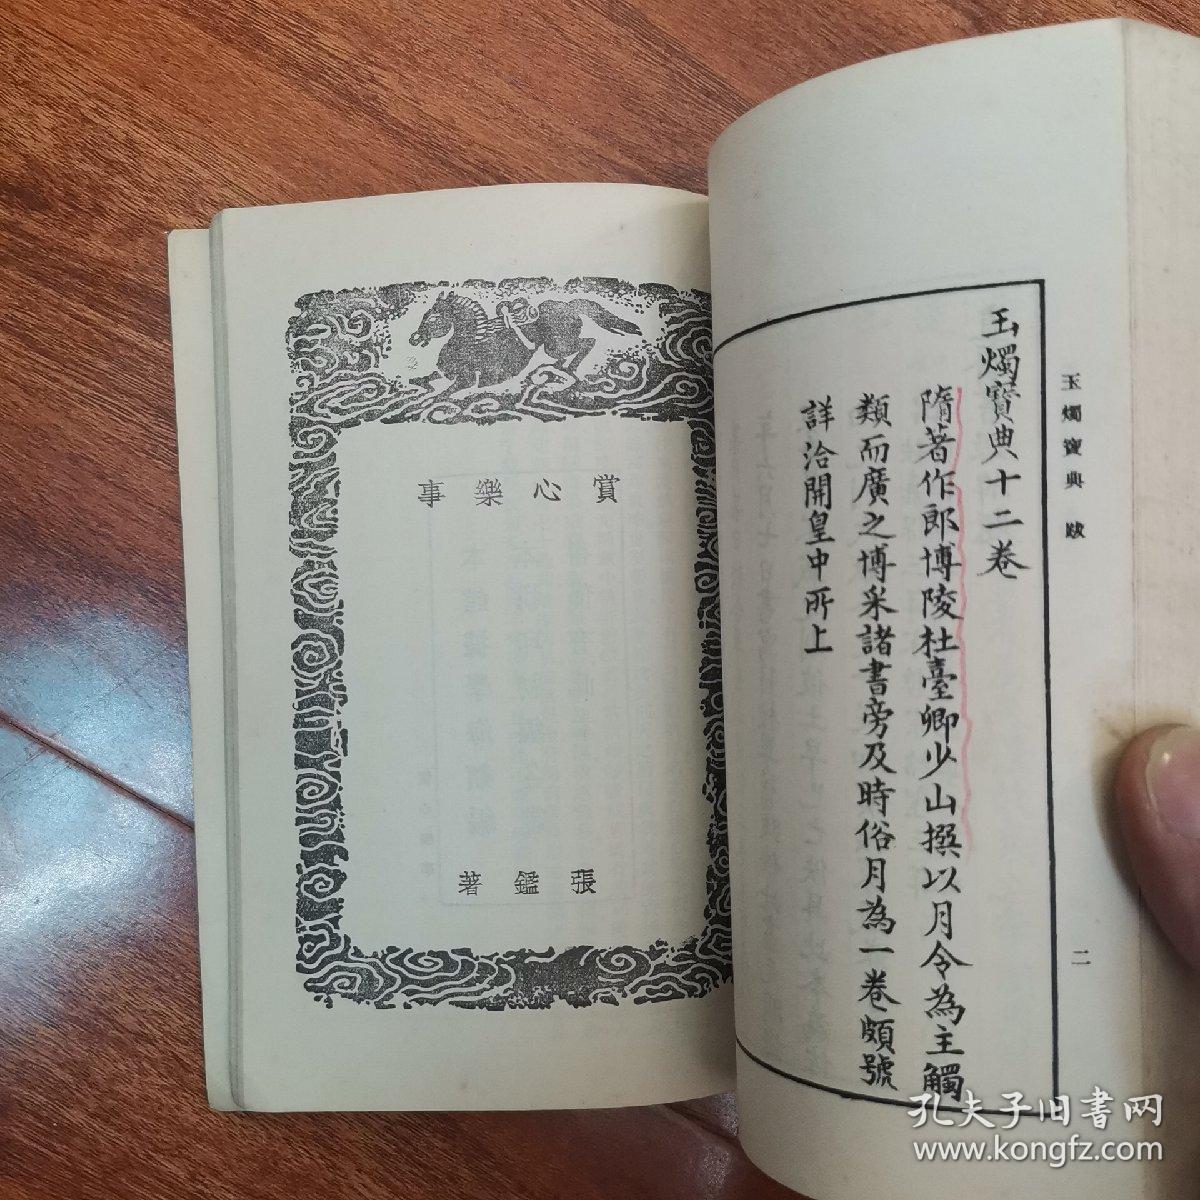 玉燭寶典十二卷
隋著作郎博陵杜臺卿少山撰以月令為主觸
類而廣之博采諸書旁及時俗月為一卷頗號
詳洽開皇中所上
玉燭寶典 跋
二
事樂心賞
著鑑張
孔夫子旧书网
www.kongfz.com